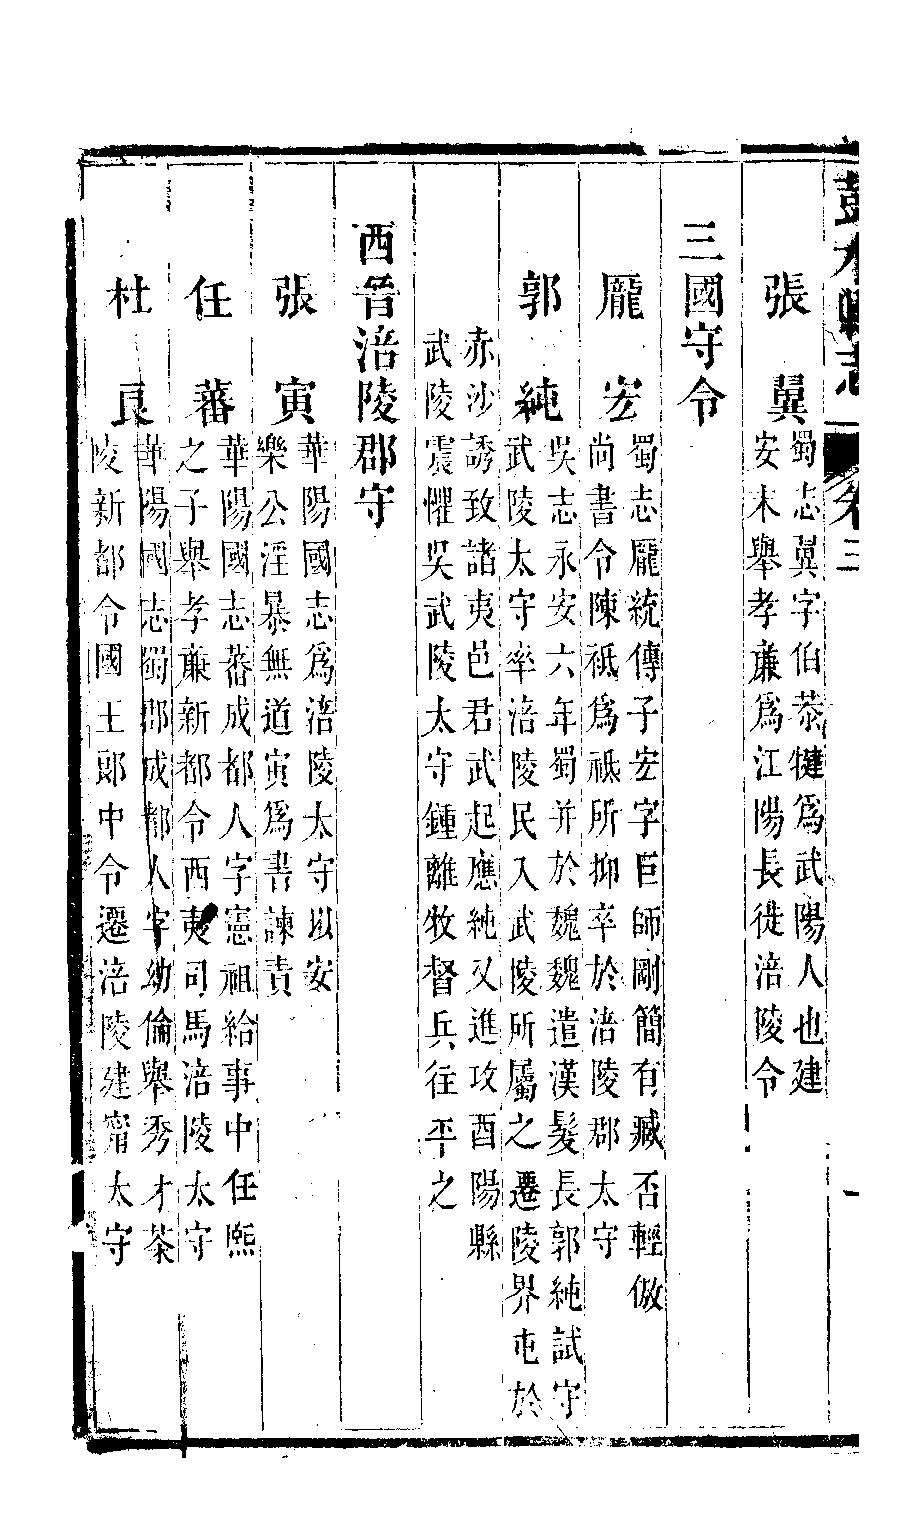 彭水縣志 卷三 一
張翼 蜀志翼字伯恭犍爲武陽人也建
安末舉孝廉爲江陽長徙涪陵令
三國守令
龎宏 蜀志龎統傳子宏字巨師剛簡有臧否輕傲
尚書令陳祗爲祗所抑卒於涪陵郡太守
郭純 吳志永安六年蜀并於魏魏遣漢髮長郭純試守
武陵太守率涪陵民入武陵所屬之遷陵界屯於
赤沙誘致諸夷邑君武起應純又進攻酉陽縣
武陵震懼吳武陵太守鍾離牧督兵往平之
西晉涪陵郡守
張寅 華陽國志爲涪陵太守以安
樂公淫暴無道寅爲書諫責
任蕃 華陽國志蕃成都人字憲祖給事中任熙
之子舉孝廉新都令西夷司馬涪陵太守
杜良 華陽國志蜀郡成都人字幼倫舉秀才茶
陵新都令國王郎中令遷涪陵建甯太守